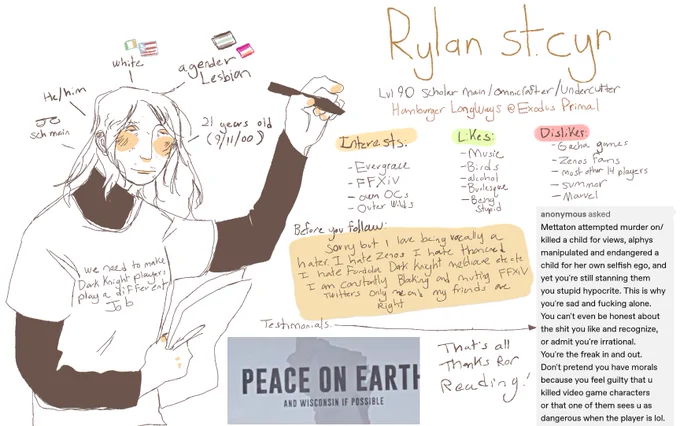 Rylan st. cyr
Lvl 90 scholar main/omnicrafter/undercutter
Hamburger Longways @ Exodus Primal
white
agender
Lesbian
He/him
sch main
21 years old
(9/11/00)
we need to make
Dark Knight players
play a different
Job
Interests:
- Evergrace
- FFXIV
- own OCs
- Outer Wilds
Likes:
- Music
- Birds
- alcohol
- Burlesque
- Being
stupid
Dislikes:
- Gacha games
- Zenos Fans
- most other 14 players
- summer
- Marvel
Before you follow:
sorry but I love being vocally a
hater. I hate Zenos I hate Thancred
I hate Fordola Dark Knight mediocre etc etc
I am constantly Blocking and muting FFXIV
Twitters only me and my friends are
Right
Testimonials
PEACE ON EARTH
AND WISCONSIN IF POSSIBLE
That's all
Thanks for
Reading!
anonymous asked
Mettaton attempted murder on/
killed a child for views, alphys
manipulated and endangered a
child for her own selfish ego, and
yet you're still stanning them
you stupid hypocrite. This is why
you're sad and fucking alone.
You can't even be honest about
the shit you like and recognize,
or admit you're irrational.
You're the freak in and out.
Don't pretend you have morals
because you feel guilty that u
killed video game characters
or that one of them sees u as
dangerous when the player is lol.